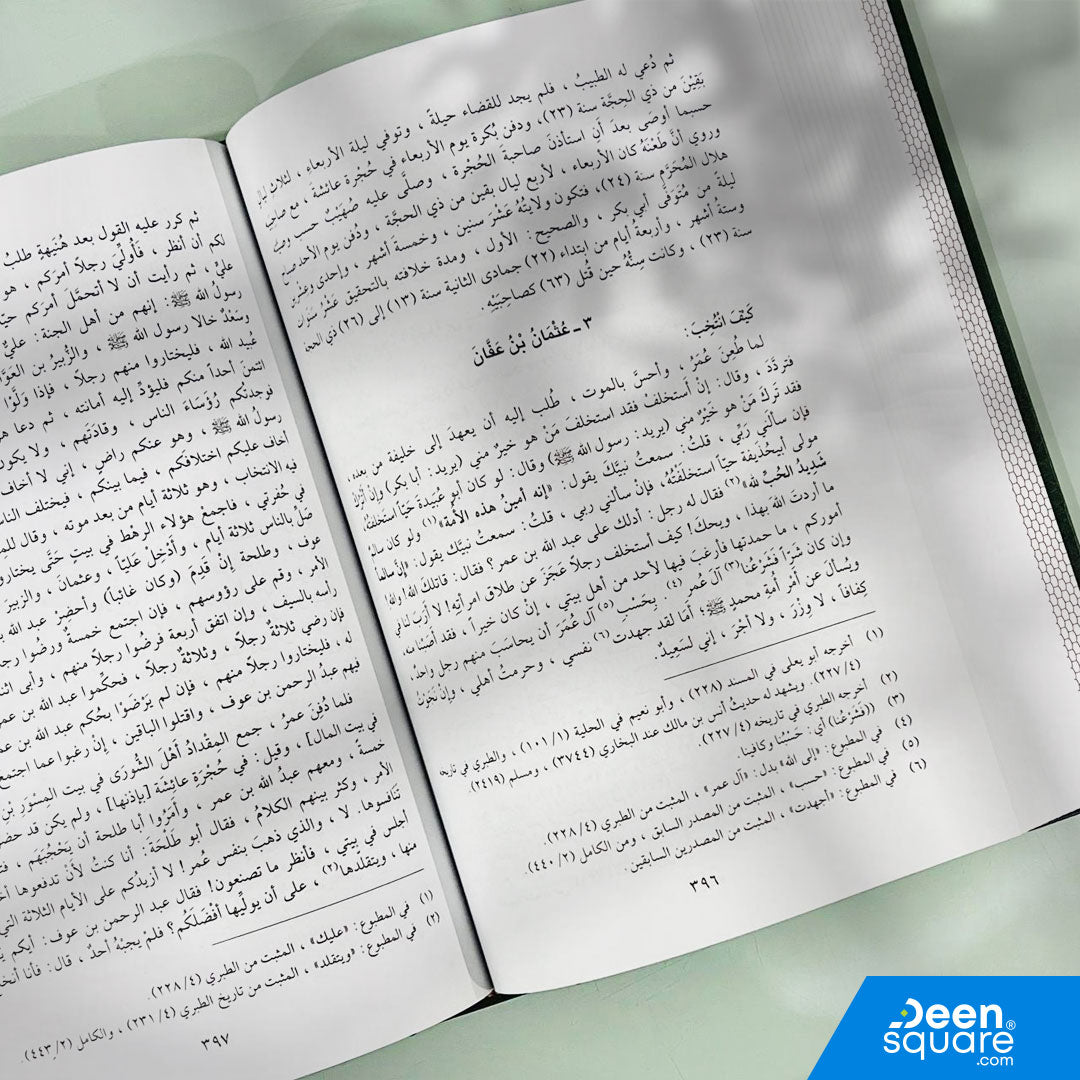 ثم دُعي له الطبيبُ ، فلم يجد للقضاء حيلةً ، وتوفي ليلة الأربعاء ، لثلاث ليالٍ
بَقِيْنَ من ذي الحجَّة سنة (٢٣)، ودفن بُكرة يوم الأربعاء في حُجْرة عائشة ، مع صاحبَيْه
حسبما أوصَى بعدَ أن استأذنَ صاحبةَ الحُجْرة ، وصلَّى عليه صُهَيْبٌ حسب
وروي أنَّ طَعْنَهُ كان الأربعاء ، لأربع ليال بقين من ذي الحجَّة ، ودُفن يوم الأحد صباح
هلال المُحَرَّم سنة (٢٤)، فتكون ولايتُهُ عَشْرَ سنين ، وخمسةَ أشهر ، وإحدى وعشرين
ليلةً من مُتَوَفَّى أبي بكر ، والصحيح: الأول ، ومدة خلافته بالتحقيق عَشْرُ سنوات
وستةُ أشهر ، وأربعةُ أيام من ابتداء (٢٢) جمادى الثانية سنة (١٣) إلى (٢٦) ذي الحجة
سنة (٢٣) ، وكانت سِنُّهُ حين قُتل (٦٣) كصاحِبَيْه.
٣ ـ عُثْمَانُ بْنُ عَفَّانَ
كَيْفَ انْتُخِبَ:
لما طُعِنَ عُمَرُ ، وأحسَّ بالموت ، طُلب إليه أن يعهدَ إلى خليفة من بعده ،
فتردَّدَ ، وقال: إنْ أستخلفْ فقد استخلفَ مَنْ هو خيرٌ مني (يريد: أبا بكر) وإنْ أتْرُكْ
فقد تَركَ مَنْ هو خَيْرٌ مني (يريد: رسول الله ﷺ) وقال: لو كان أبو عُبيدةَ حَيّاً استخلفتُهُ
فإن سألني رَبِّي ، قلتُ: سمعتُ نبيَّكَ يقول: «إنه أمينُ هذه الأمة»(١) ولو كان سالمٌ
مولى أبي حُذيفةَ حيّاً استخلَفْتُهُ، فإنْ سألني ربي ، قلتُ: سمعتُ نبيَّك يقول: «إنَّ سالماً
شَدِيدُ الحُبِّ لله»(٢) فقال له رجل: أدلك على عبد الله بن عمر؟ فقال: قاتلكَ الله! والله
ما أردتَ اللهَ بهذا ، ويحكَ! كيف أستخلف رجلاً عَجَزَ عن طلاق امرأتِه! لا أرَبَ لنا في
أموركم ، ما حمدتها فأرغبَ فيها لأحد من أهل بيتي ، إنْ كان خيراً ، فقد أصَبْنا منه،
وإن كان شَرّاً فَشَرْعُنا(٣) آلَ عُمر(٤). بِحَسْبِ(٥) آل عُمَرَ أن يحاسَبَ منهم رجل واحدٌ،
ويُسألَ عن أمْرِ أمةِ محمدٍ ﷺ؛ أمَا لقد جهدت(٦) نفسي ، وحرمتُ أهلي ، وإنْ نَجَوْتُ
كِفافاً ، لا وِزْرَ ، ولا أجْرَ ، إني لسَعِيدٌ.
(١) أخرجه أبو يعلى في المسند (٢٢٨) ، وأبو نعيم في الحلية (١٠١/١) ، والطبري في تاريخه
(٢٢٧/٤). ويشهد له حديثُ أنس بن مالك عند البخاري (٣٧٤٤) ، ومسلم (٢٤١٩).
(٢) أخرجه الطبري في تاريخه (٢٢٧/٤).
(٣) (فشَرْعُنا) أي: حَسْبُنا وكافينا.
(٤) في المطبوع: «إلى الله» بدل: «آل عمر» ، المثبت من الطبري (٢٢٨/٤).
(٥) في المطبوع: «حسب» ، المثبت من المصدر السابق ، ومن الكامل (٤٤٠/٢).
(٦) في المطبوع: «أجهدت» ، المثبت من المصدرين السابقين.
٣٩٦
ثم كرر عليه القول بعد هُنَيهةٍ طلبُ
لكم أن أنظر ، فَأُولِّيَ رجلاً أمرَكم ، هو
عليٌّ ، ثم رأيت أن لا أتحمَّلَ أمركم
رسولُ الله ﷺ: إنهم من أهل الجنة: عليٌّ
وسَعْدٌ خالا رسول الله ﷺ ، والزُّبير بن العَوَّا
عُبيد الله ، فليختاروا منهم رجلاً ، فإذا وَلَّوْا
ائتمنَ أحداً منكم فليؤدِّ إليه أمانته ، ثم دعا
فوجدتُكم رُؤَسَاءَ الناس ، وقادَتَهم ، ولا يكون
رسولُ الله ﷺ ، وهو عنكم راضٍ ، إني لا أخاف
أخاف عليكم اختلافَكم ، فيما بينكم ، فيختلف الناس
فيه الانتخاب ، وهو ثلاثة أيام من بعد موته ، وقال
في حُفرتي ، فاجمعْ هؤلاء الرهْط في بيتٍ حَتَّى يختاروا
صَلِّ بالناس ثلاثة أيام ، وأَدْخِلْ عَلياً ، وعثمانَ ، والزبيرَ
عوف ، وطلحة إنْ قَدِمَ (وكان غائباً) وأحضِرْ عبد الله
الأمر ، وقم على رؤوسهم ، فإن اجتمع خمسةٌ ورضُوا رجلاً
رأسه بالسيف ، وإن اتفق أربعة فرضُوا رجلاً منهم ، وأبى
فإن رضي ثلاثةٌ رجلاً ، وثلاثةٌ رجلاً ، فحكِّموا عبد الله بن عمر
له ، فليختاروا رجلاً منهم ، فإن لم يَرْضَوْا بحُكم عبد الله بن
فيهم عبدُ الرحمن بن عوف ، واقتلوا الباقين ، إنْ رغبوا عما اجتمع
فلما دُفِنَ عمرُ ، جمع المقدادُ أهْلَ الشُّورَى في بيت المِسْوَر بن
في بيت المال] ، وقيل: في حُجْرَةِ عائِشَةَ [بإذنها] ، ولم يكن قد حضر
خمسةٌ ، ومعهم عبدُ الله بن عمر ، وأمَرُوا أبا طلحة أن يَحْجُبَهم ،
الأمر ، وكثر بينهم الكلامُ ، فقال أبو طَلْحَةَ: أنا كنتُ لأَنْ تدفعوها
تَنافسوها. لا ، والذي ذهبَ بنفس عُمر! لا أزيدُكم على الأيام الثلاثة التي
أجلس في بيتي ، فأنظر ما تصنعون! فقال عبد الرحمن بن عوف: أيكم
منها ، ويتقلدُها(٢) ، على أن يوليها أفْضَلَكُم؟ فلمْ يجبْهُ أحدٌ ، قال: فأنا
(١) في المطبوع: «عليك» ، المثبت من الطبري (٢٢٨/٤).
(٢) في المطبوع: «ويتقلد» ، المثبت من تاريخ الطبري (٢٣١/٤) ، والكامل (٤٤٣/٢).
٣٩٧
Deen
square®
.com